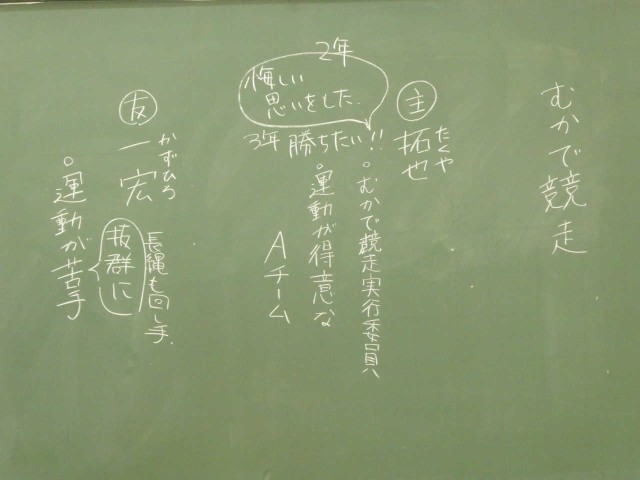 むかで競走
主
拓也
たくや
2年
悔しい
思いをした.
3年 勝ちたい!!
。むかで競走実行委員
。運動が得意な
Aチーム
友
一宏
かずひろ
長縄も回し手.
。運動が苦手
抜群に